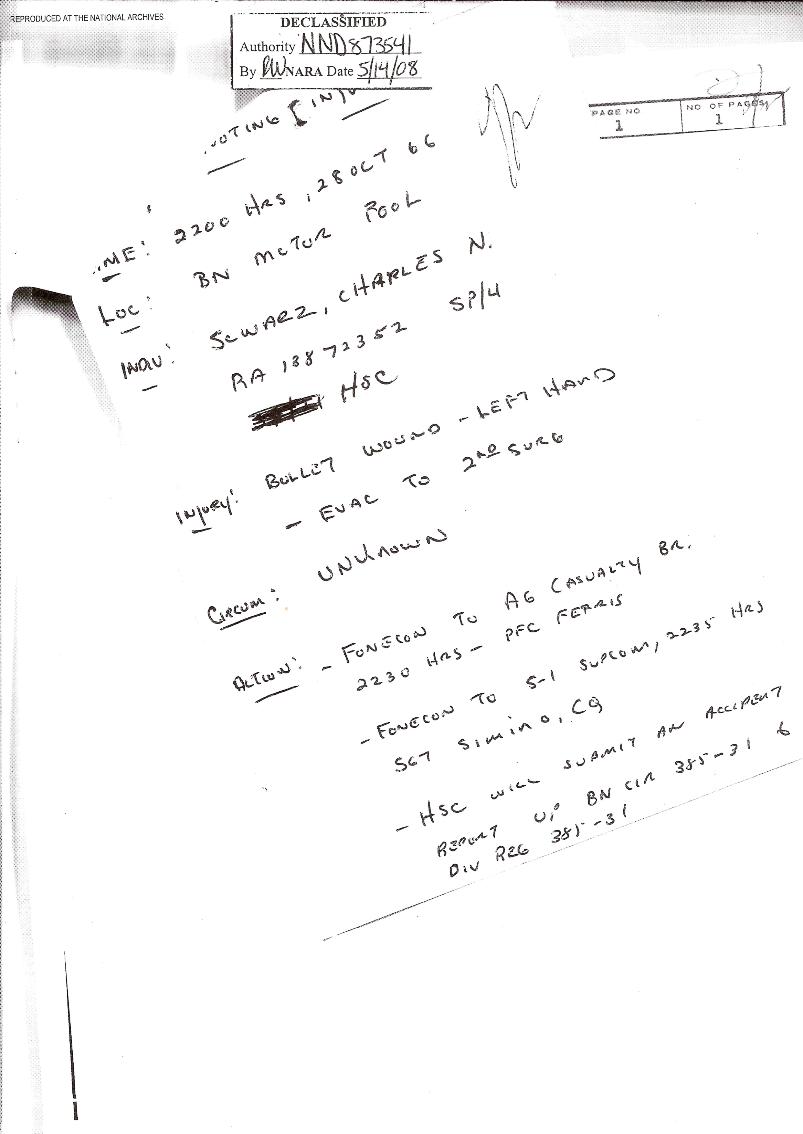 REPRODUCED AT THE NATIONAL ARCHIVES
DECLASSIFIED
Authority NND873541
By NARA Date 5/14/08
PAGE NO. NO. OF PAGES
1 1
OTING [INJU
ME: 2200 HRS, 28 OCT 66
LOC: BN MOTOR POOL
INDIV: SCWARZ, CHARLES N.
RA 13872352 SP/4
HSC
INJURY: BULLET WOUND - LEFT HAND
- EVAC TO 2ND SURG
CIRCUM: UNKNOWN
ACTION: - FONECON TO AG CASUALTY BR.
2230 HRS - PFC FERRIS
- FONECON TO S-1 SUPCOM, 2235 HRS
SGT SIMINO, CQ
- HSC WILL SUBMIT AN ACCIDENT
REPORT BN CIR 385-31 &
DIV REG 385-31